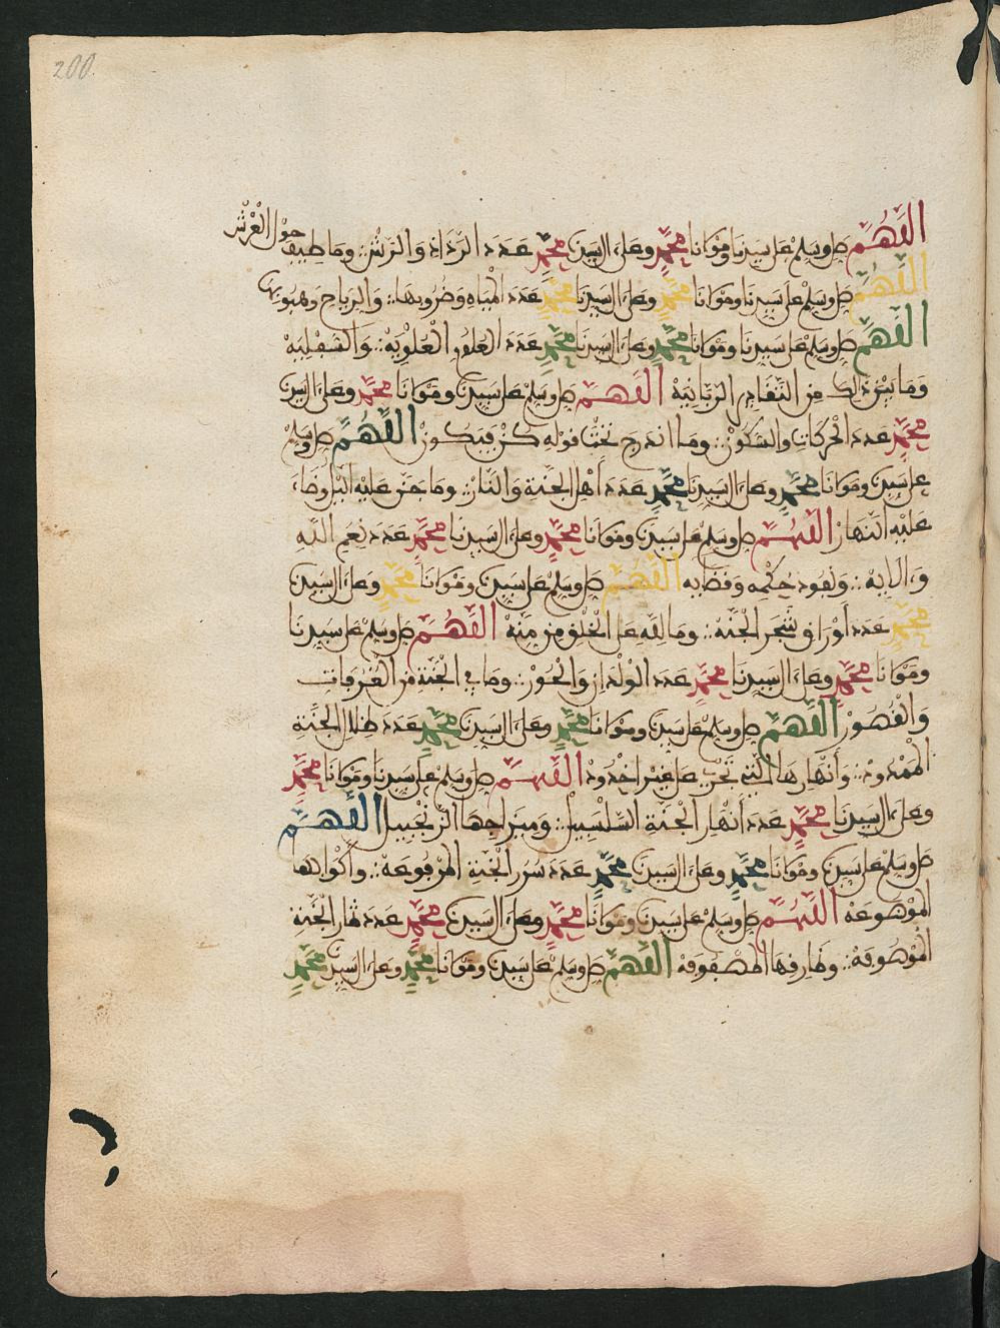 200
اللهم صل وسلم على سيدنا ومولانا محمد وعلى ءال سيدنا محمد عدد الرذاذ والرش وما طيف حول العرش
اللهم صل وسلم على سيدنا ومولانا محمد وعلى ءال سيدنا محمد عدد المياه وضروبها والرياح وهبوبها
اللهم صل وسلم على سيدنا ومولانا محمد وعلى ءال سيدنا محمد عدد العلوم العلوية والسفلية
وما بين ذلك من التقادير الربانية اللهم صل وسلم على سيدنا ومولانا محمد وعلى ءال سيدنا
محمد عدد الحركات والسكون وما اندرج تحت قوله كن فيكون اللهم صل وسلم
على سيدنا ومولانا محمد وعلى ءال سيدنا محمد عدد أهل الجنة والنار وما جن عليه الليل وضاء
عليه النهار اللهم صل وسلم على سيدنا ومولانا محمد وعلى ءال سيدنا محمد عدد نعم الله
وءالايه ونفوذ حكمه وقضايه اللهم صل وسلم على سيدنا ومولانا محمد وعلى ءال سيدنا
محمد عدد أوراق شجر الجنة وما لله على الخلق من منة اللهم صل وسلم على سيدنا
ومولانا محمد وعلى ءال سيدنا محمد عدد الولدان والحور وما في الجنة من الغرفات
والقصور اللهم صل وسلم على سيدنا ومولانا محمد وعلى ءال سيدنا محمد عدد ظلال الجنة
الممدود وأنهارها التي تجري على غير اخدود اللهم صل وسلم على سيدنا ومولانا محمد
وعلى ءال سيدنا محمد عدد أنهار الجنة السلسبيل ومزاجها الزنجبيل اللهم
صل وسلم على سيدنا ومولانا محمد وعلى ءال سيدنا محمد عدد سرر الجنة المرفوعة وأكوابها
الموضوعة اللهم صل وسلم على سيدنا ومولانا محمد وعلى ءال سيدنا محمد عدد ثمار الجنة
الموصوفة ونمارفها المصفوفة اللهم صل وسلم على سيدنا ومولانا محمد وعلى ءال سيدنا محمد